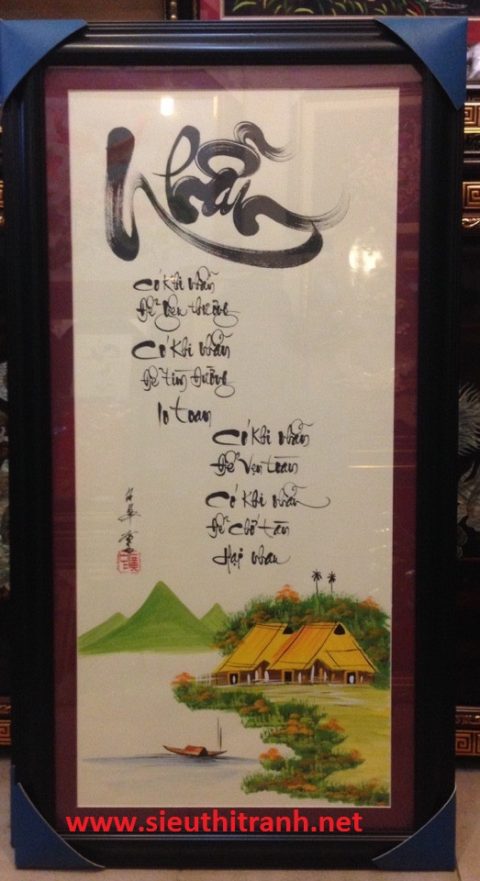 Nhẫn
Có khi nhẫn
để yêu thương
Có khi nhẫn
để tìm đường
lo toan
Có khi nhẫn
để vẹn toàn
Có khi nhẫn
để chớ tàn
hại nhau
www.sieuthitranh.net